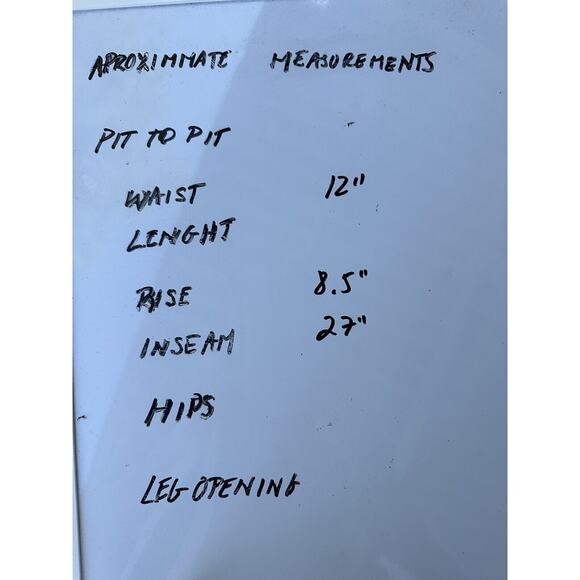 APROXIMMATE MEASUREMENTS
PIT TO PIT
WAIST 12"
LENGHT
RISE 8.5"
INSEAM 27"
HIPS
LEG OPENING